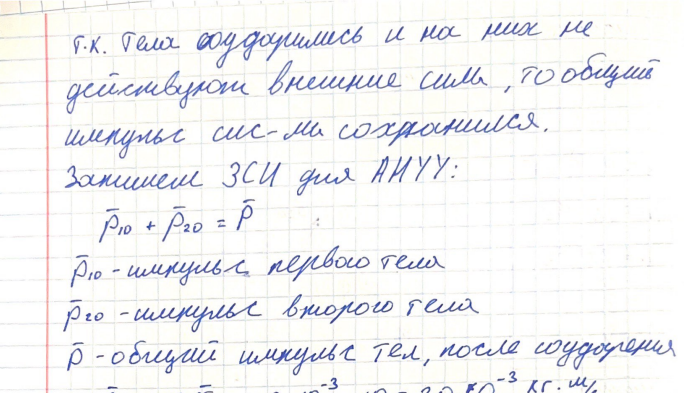 Т.к. тела соударились и на них не
действуют внешние силы, то общий
импульс сис-мы сохранился.
Запишем ЗСИ для АНУУ:
p̄₁₀ + p̄₂₀ = p̄
p̄₁₀ - импульс первого тела
p̄₂₀ - импульс второго тела
p̄ - общий импульс тел, после соударения